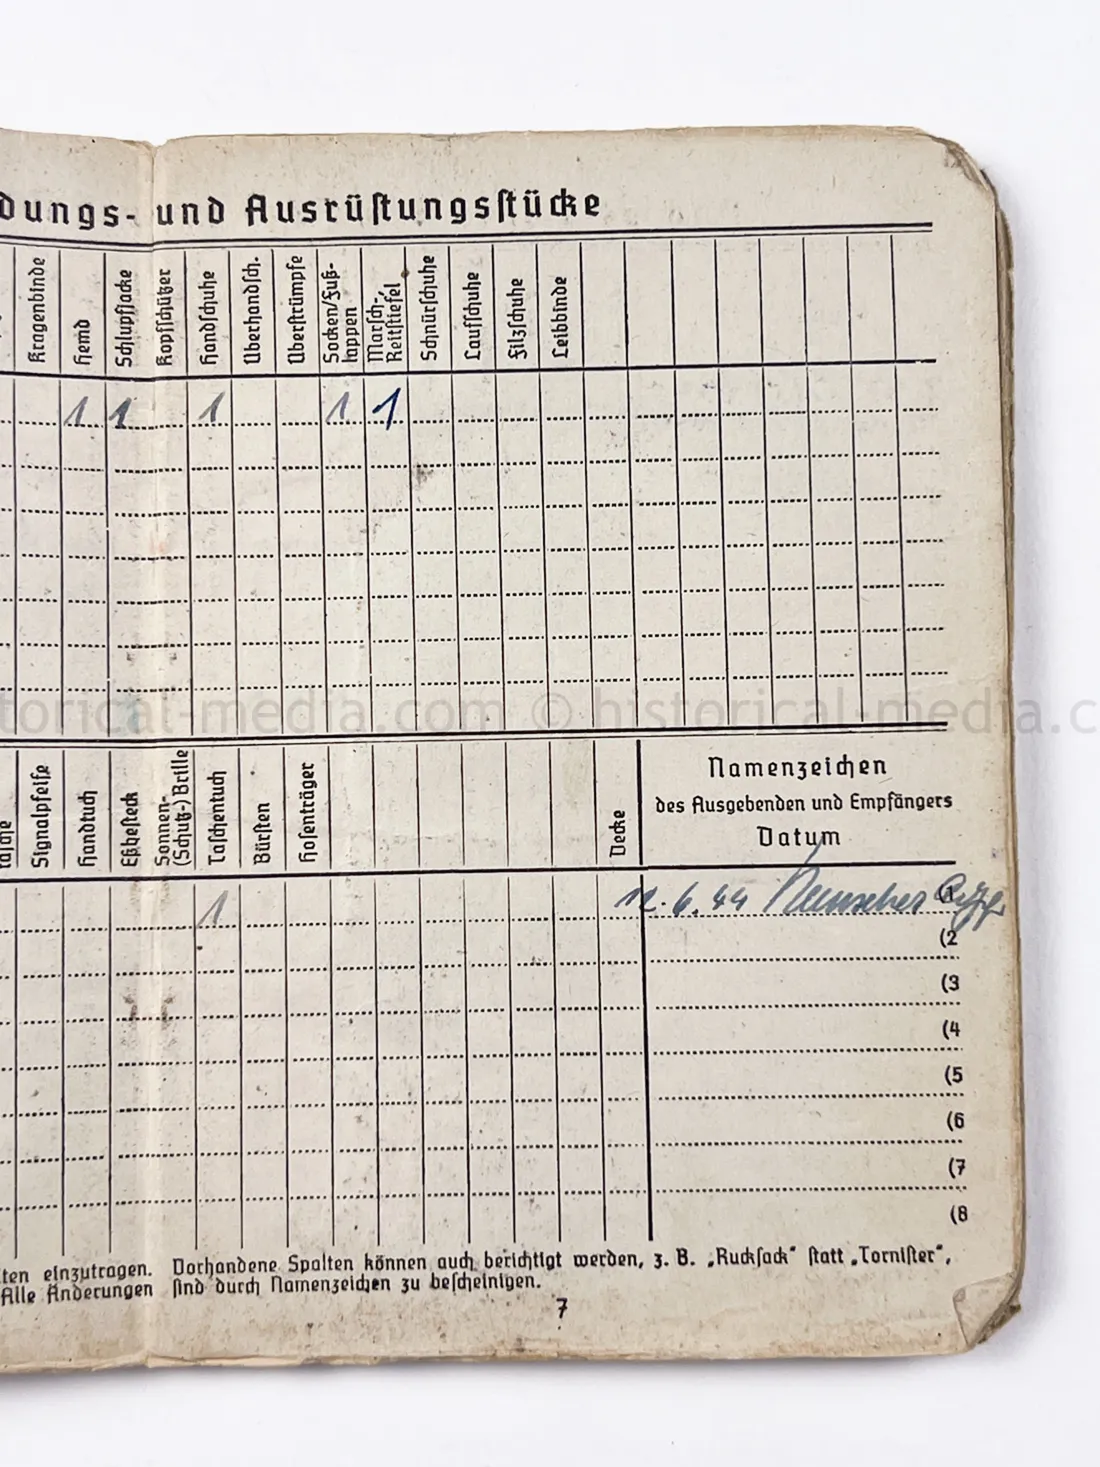 dungs- und Ausrüstungsstücke
Kragenbinde
Hemd
Schlupfjacke
Kopfschützer
Handschuhe
Überhandsch.
Überstrümpfe
Socken/Fuß-
lappen
Marsch-,
Reitstiefel
Schnürschuhe
Laufschuhe
Filzschuhe
Leibbinde
1 1 1 1 1
torical-media.com © historical-media.c
tasche
Signalpfeife
Handtuch
Eßbesteck
Sonnen-
(Schutz-) Brille
Taschentuch
Bürsten
Hosenträger
Decke
Namenzeichen
des Ausgebenden und Empfängers
Datum
1 12.6.44 (1
(2
(3
(4
(5
(6
(7
(8
ten einzutragen. Vorhandene Spalten können auch berichtigt werden, z. B. „Rucksack“ statt „Tornister“,
Alle Änderungen sind durch Namenzeichen zu bescheinigen.
7